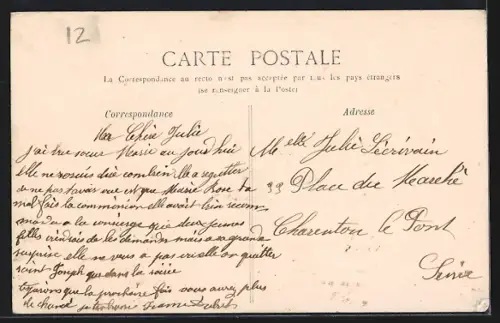 12
CARTE POSTALE
La Correspondance au recto n'est pas acceptée par tous les pays étrangers
(se renseigner à la Poste)
Correspondance
Ma Chère Julie
j'ai vue sœur Marie au jourd'hui
elle ne saurais dire combien elle a regretter
de ne pas t'avoir vue est que Marie Rose ta
mal fais la commission elle avait bien recom
mander a la concierge que deux jeunes
filles viendrais de les demander mais a sa grande
surprise elle ne vous a pas vue elle on quitter
saint Joseph que dans la soirée
espérons que la prochaine fois vous aurez plus
de chance je t'embrasse
Adresse
Melle Julie Lécrivain
33 Place du Marché
Charenton le Pont
Seine